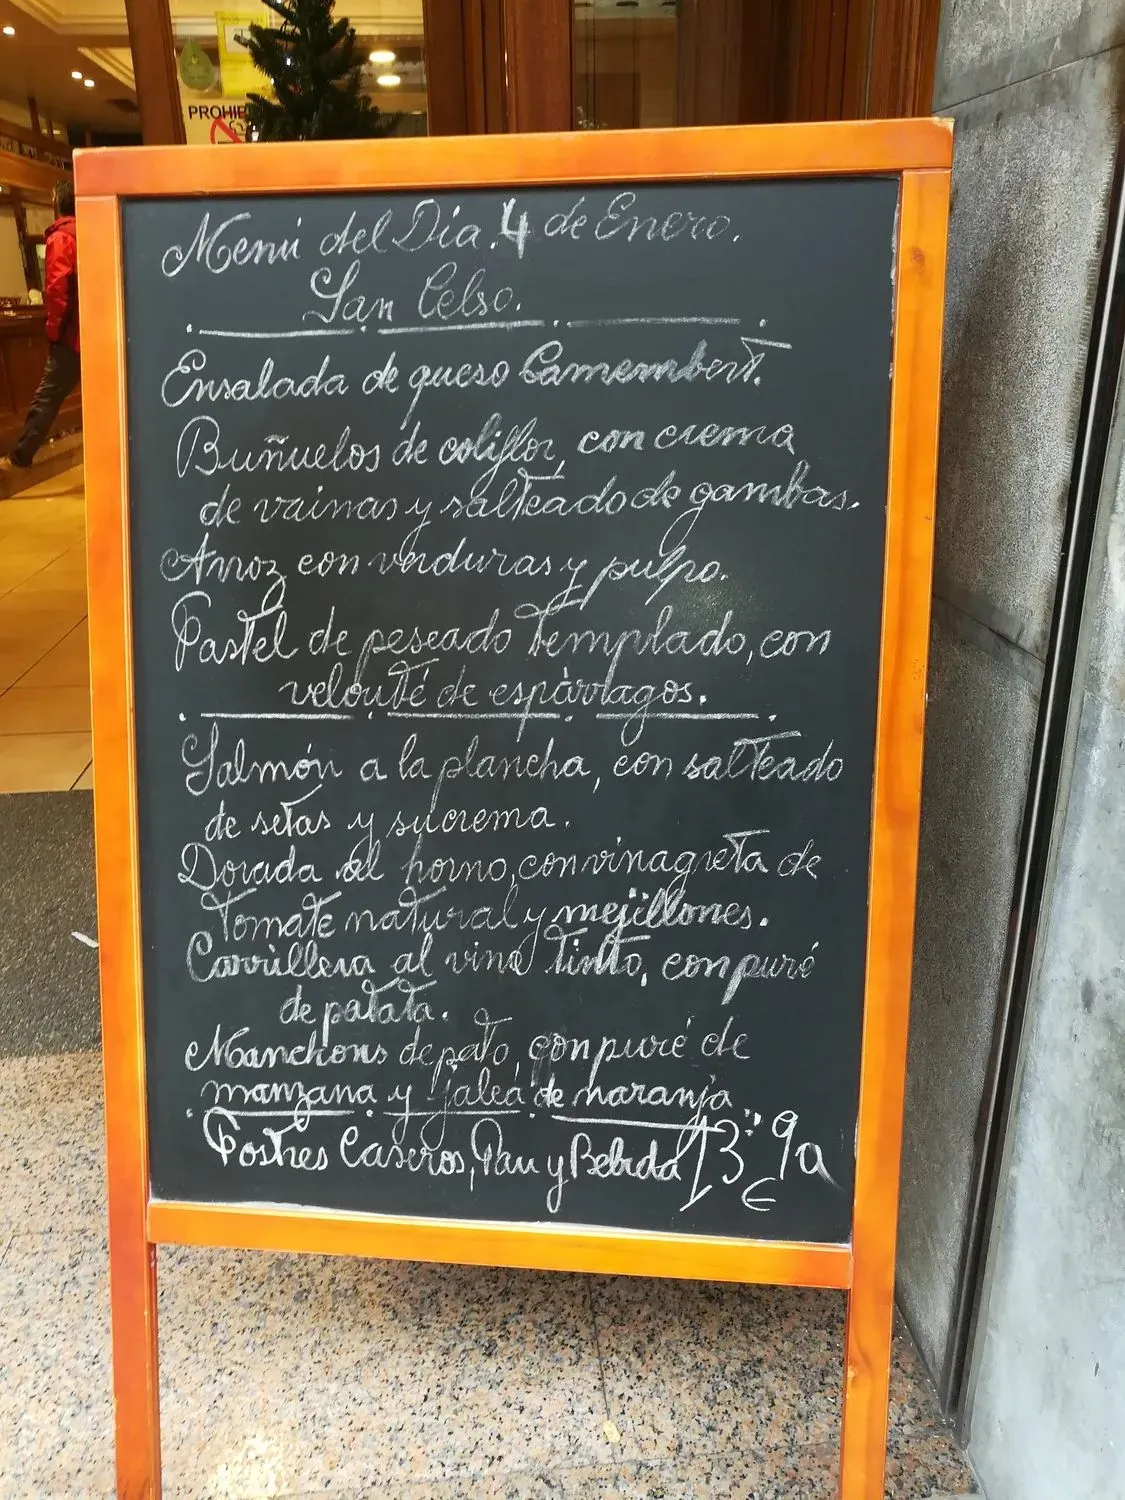 PROHIB
Menú del Día. 4 de Enero.
San Celso.
Ensalada de queso Camembert.
Buñuelos de coliflor, con crema
de vainas y salteado de gambas.
Arroz con verduras y pulpo.
Pastel de pescado Templado, con
velouté de espárragos.
Salmón a la plancha, con salteado
de setas y su crema.
Dorada al horno, con vinagreta de
Tomate natural y mejillones.
Carrillera al vino Tinto, con puré
de patata.
Manchons de pato, con puré de
manzana y jalea de naranja.
Postres Caseros, Pan y Bebida 13'90
€